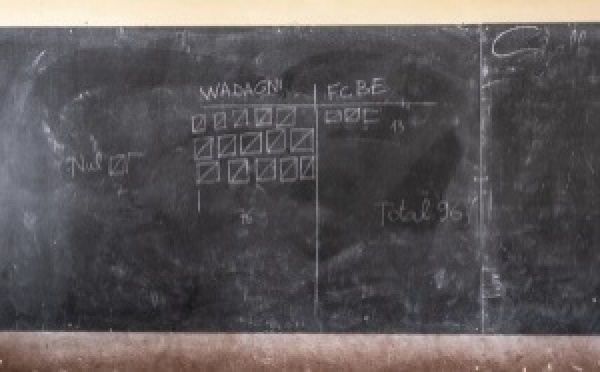 WADAGNI FCBE
13
Nul
76
Total 96